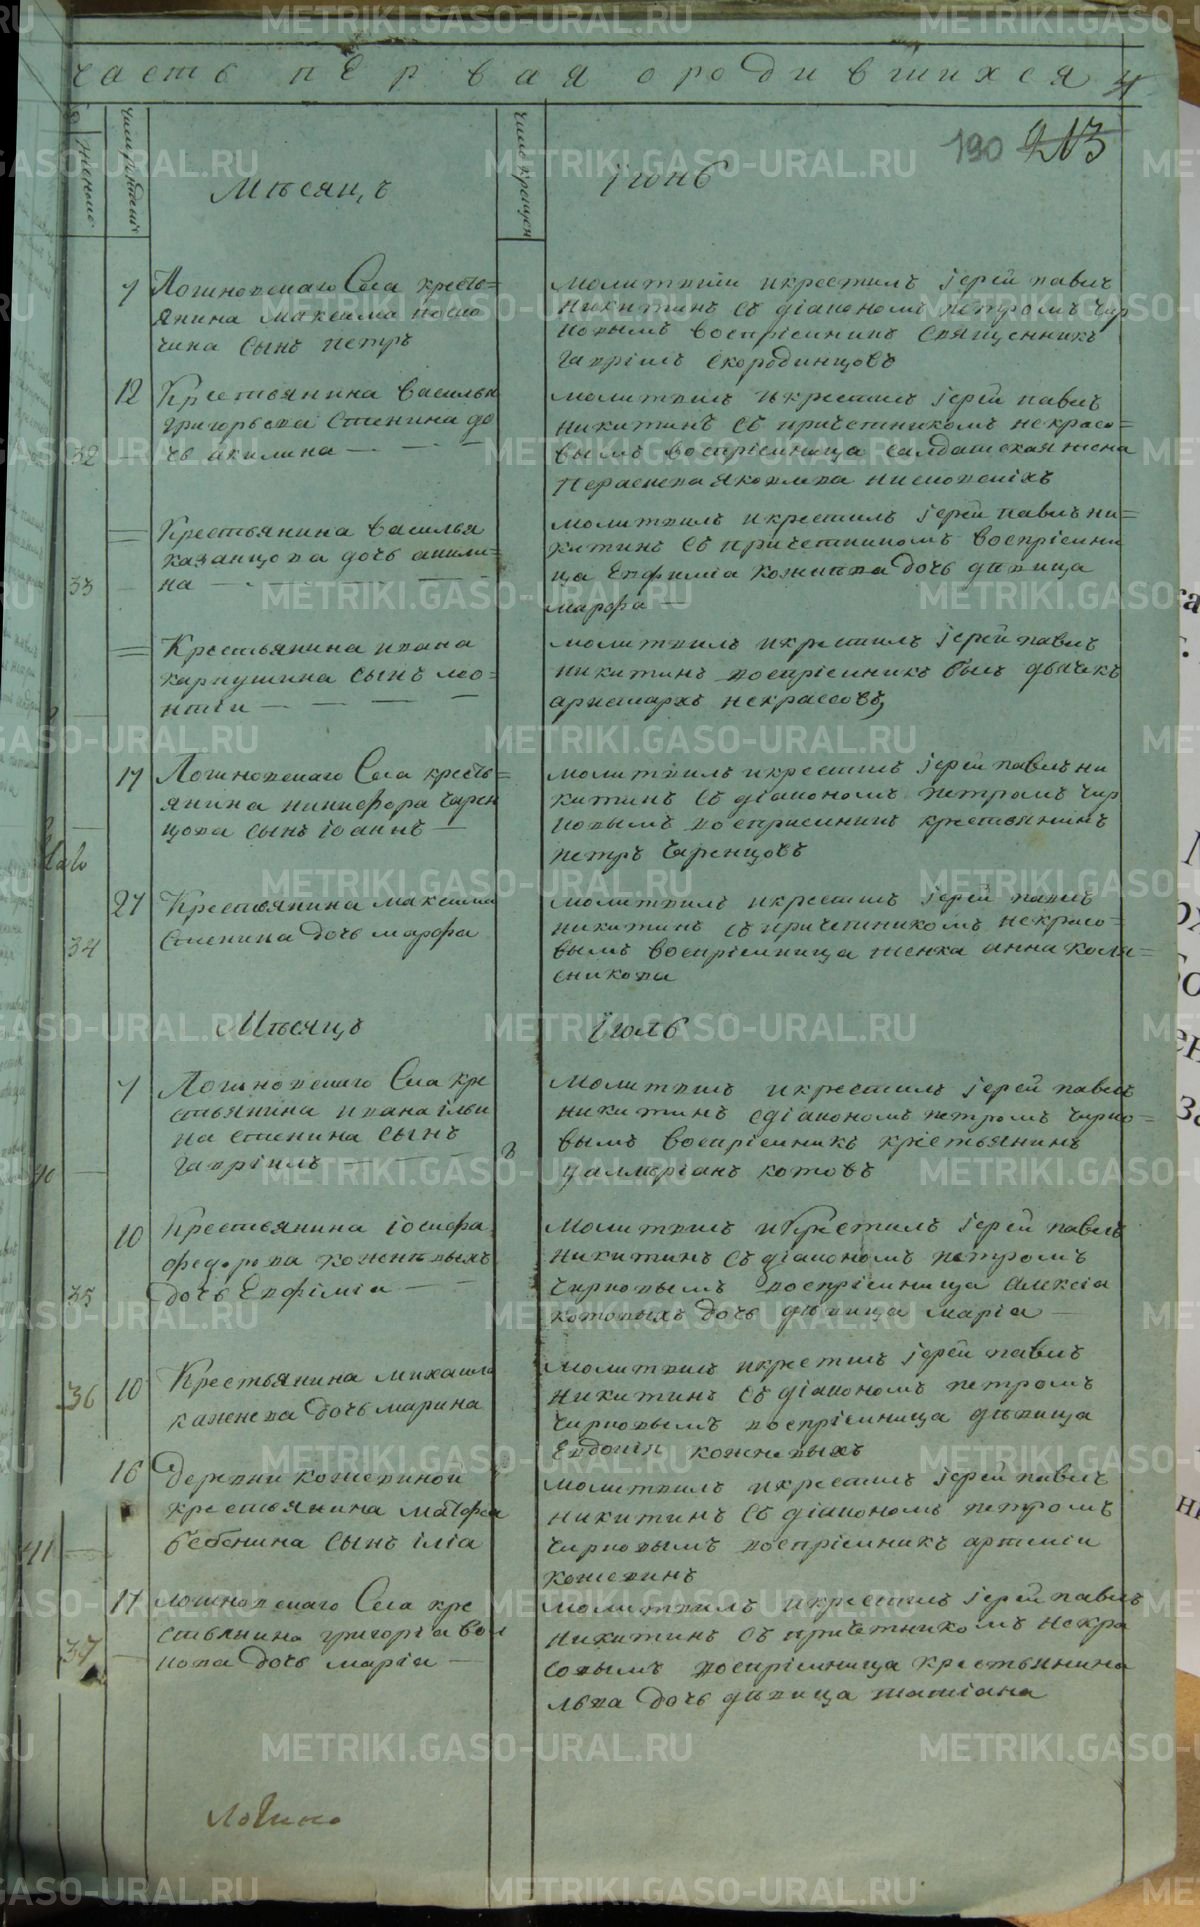 часть первая о родившихся 4
женска
число рождения
число крещен
190 213
Мѣсяцъ Іюнь
7 Логиновскаго Села кресть=
янина Максима
чина сынъ петръ
молитвилъ и крестилъ іерей павелъ
никитинъ съ діакономъ петромъ чир
новымъ воспріемникъ священникъ
гавріилъ Скородинцовъ
12 Крестьянина василья
григорьева Стенина до
32 чь акилина
молитвилъ и крестилъ іерей павелъ
никитинъ съ причетникомъ некрасо=
вымъ воспріемница салдатская жена
Параскева Яковлева
Крестьянина василья
казанцова дочь акили=
33 на
молитвилъ и крестилъ іерей павелъ ни=
китинъ съ причетникомъ воспріемни
ца Евфимія дочь дѣвица
марфа
Крестьянина ивана
карпушина сынъ лео=
нтіи
молитвилъ и крестилъ іерей павелъ
никитинъ воспріемникъ былъ дьячекъ
аристархъ некрассовъ
17 Логиновскаго Села кресть=
янина никифора чарен
цова сынъ іоаннъ
молитвилъ и крестилъ іерей павелъ ни
китинъ съ діакономъ петромъ чир
новымъ воспріемникъ крестьянинъ
петръ чаренцовъ
27 Крестьянина максима
34 Стенина дочь марфа
молитвилъ и крестилъ іерей павелъ
никитинъ съ причетникомъ некрасо=
вымъ воспріемница женка анна коле=
сникова
Мѣсяцъ Іюль
7 Логиновскаго Села кре
стьянина ивана ильи
на стенина сынъ
40 гавріилъ 8
молитвилъ и крестилъ іерей павелъ
никитинъ съ діакономъ петромъ чирно=
вымъ воспріемникъ крестьянинъ
валлеріанъ котовъ
10 Крестьянина іосифа
федорова кожевныхъ
35 дочь Евфимія
молитвилъ и крестилъ іерей павелъ
никитинъ съ діакономъ петромъ
чирновымъ воспріемница Алексіа
котовыхъ дочь дѣвица марія
36 10 Крестьянина михаила
дочь марина
молитвилъ и крестилъ іерей павелъ
никитинъ съ діакономъ петромъ
чирновымъ воспріемница дѣвица
Евдокіи кожевныхъ
16 Деревни кожевиной
крестьянина матфея
41 бебенина сынъ ілія
молитвилъ и крестилъ іерей павелъ
никитинъ съ діакономъ петромъ
чирновымъ воспріемникъ артеміи
кожевинъ
17 логиновскаго Села кре
стьянина григорія вол
37 кова дочь марія
молитвилъ и крестилъ іерей павелъ
никитинъ съ причетникомъ некра
совымъ воспріемница крестьянина
льва дочь дѣвица татіана
логино